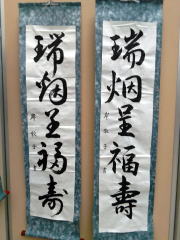 瑞烟呈福壽
瑞烟呈福寿